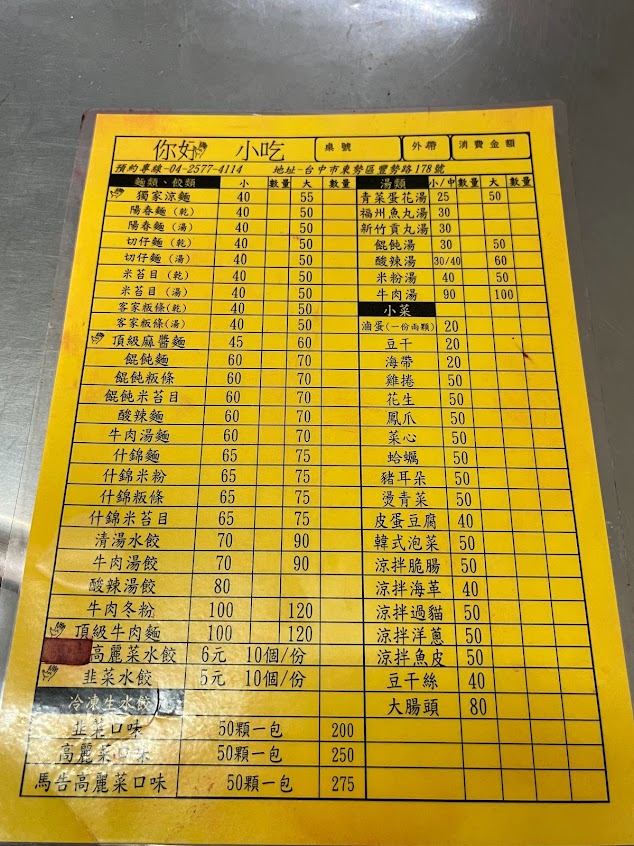 你好 小吃 桌號 外帶 消費金額
預約專線-04-2577-4114 地址-台中市東勢區豐勢路178號
麵類、餃類 小 數量 大 數量 湯類 小/中 數量 大 數量
獨家涼麵 40 55 青菜蛋花湯 25 50
陽春麵(乾) 40 50 福州魚丸湯 30
陽春麵(湯) 40 50 新竹貢丸湯 30
切仔麵(乾) 40 50 餛飩湯 30 50
切仔麵(湯) 40 50 酸辣湯 30/40 60
米苔目(乾) 40 50 米粉湯 40 50
米苔目(湯) 40 50 牛肉湯 90 100
客家粄條(乾) 40 50 小菜
客家粄條(湯) 40 50 滷蛋(一份兩顆) 20
頂級麻醬麵 45 60 豆干 20
餛飩麵 60 70 海帶 20
餛飩粄條 60 70 雞捲 50
餛飩米苔目 60 70 花生 50
酸辣麵 60 70 鳳爪 50
牛肉湯麵 60 70 菜心 50
什錦麵 65 75 蛤蠣 50
什錦米粉 65 75 豬耳朵 50
什錦粄條 65 75 燙青菜 50
什錦米苔目 65 75 皮蛋豆腐 40
清湯水餃 70 90 韓式泡菜 50
牛肉湯餃 70 90 涼拌脆腸 50
酸辣湯餃 80 涼拌海蜇 40
牛肉冬粉 100 120 涼拌過貓 50
頂級牛肉麵 100 120 涼拌洋蔥 50
高麗菜水餃 6元 10個/份 涼拌魚皮 50
韭菜水餃 5元 10個/份 豆干絲 40
冷凍生水餃 大腸頭 80
韭菜口味 50顆一包 200
高麗菜口味 50顆一包 250
馬告高麗菜口味 50顆一包 275